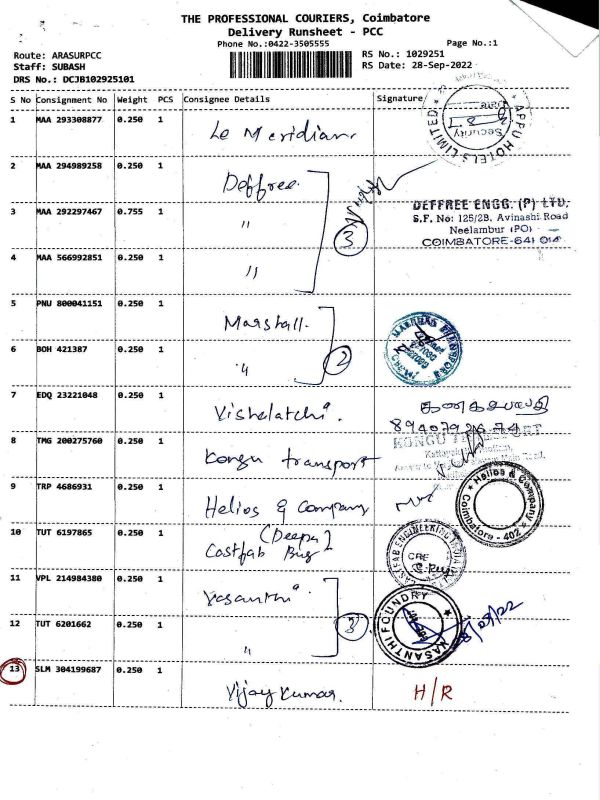 THE PROFESSIONAL COURIERS, Coimbatore
Delivery Runsheet - PCC
Phone No.:0422-3505555
Page No.:1
Route: ARASURPCC
RS No.: 1029251
Staff: SUBASH
RS Date: 28-Sep-2022
DRS No.: DCJB102925101
S No Consignment No Weight PCS Consignee Details Signature
1 MAA 293308877 0.250 1 Le Meridian
APPU HOTELS LIMITED
Security
2 MAA 294989258 0.250 1 Deffree
3 MAA 292297467 0.755 1 "
3
DEFFREE ENGG. (P) LTD.
S.F. No: 125/2B, Avinashi Road
Neelambur (PO)
COIMBATORE-641 014
4 MAA 566992851 0.250 1 "
5 PNU 800041151 0.250 1 Marshall.
6 BOH 421387 0.250 1 "
2
7 EDQ 23221048 0.250 1 Vishalatchi.
8 TMG 200275760 0.250 1 Kongu transport
9 TRP 4686931 0.250 1 Helios & Company
Helios & Company
Coimbatore - 402
10 TUT 6197865 0.250 1 Castfab Bus (Deepa)
11 VPL 214984380 0.250 1 Vasanthi
12 TUT 6201662 0.250 1 "
3
VASANTHI FOUNDRY
13 SLM 304199687 0.250 1 Vijay Kumar. H/R